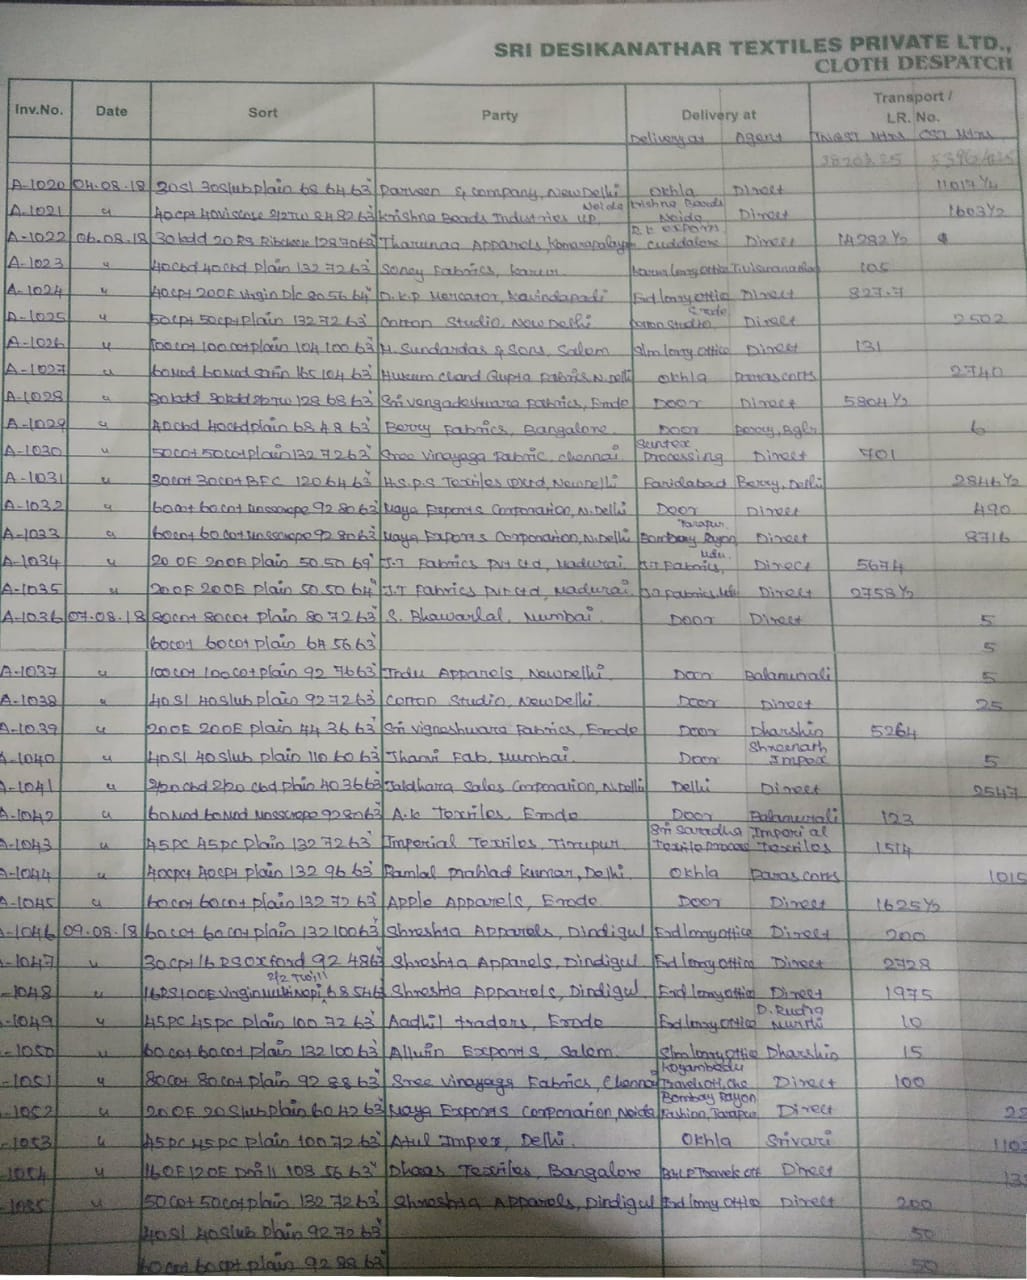 SRI DESIKANATHAR TEXTILES PRIVATE LTD.,
CLOTH DESPATCH
Inv.No. Date Sort Party Delivery at Transport / LR. No.
Delivery at Agent CST Mtrs
A-1020 04.08.18 30sl 30slub plain 68 64 63" Parveen & Company, New Delhi Okhla Direct 11017½
A-1021 " 40cpt 40viscose 2/2TW 84 82 63" Krishna Beads Industries UP, Noida Krishna Beads Noida Direct 1603½
A-1022 06.08.18 30kdd 20RS 128 70 Tharunaa Apparels, Komarapalayam Cuddalore Direct 14282½
A-1023 " 40cbd 40cbd plain 132 72 63" Soney Fabrics, Karur Karur lorry office 105
A-1024 " 40cpt 20OE Virgin D/c 80 56 64" D.K.P Mercator, Kavindapadi Erd lorry office Direct 827.7
A-1025 " 50cpt 50cpt plain 132 72 63" Cotton Studio, New Delhi Erode Cotton Studio Direct 2502
A-1026 " 100cot 100cot plain 104 100 63" M. Sundardas & Sons, Salem Slm lorry office Direct 131
A-1027 " 60Mod 60Mod satin 165 104 63" Hukum Chand Gupta Fabrics N. Delhi Okhla Paras corts 2740
A-1028 " 30kdd 30kdd 2/2TW 128 68 63" Sri Vengadeshwara Fabrics, Erode Door Direct 5804½
A-1029 " 40cbd 40cbd plain 68 48 63" Berry Fabrics, Bangalore. Door Berry, Bglr 6
A-1030 " 50cot 50cot plain 132 72 63" Sree Vinayaga Fabric, Chennai Suntex Processing Direct 701
A-1031 " 30cot 30cot BFC 120 64 63" H.S.P.S Textiles New Delhi Faridabad Berry, Delhi 2846½
A-1032 " 60cot 60cot 92 80 63" Maya Exports Corporation, N. Delhi Door Direct 490
A-1033 " 60cot 60cot 92 80 63" Maya Exports Corporation, N. Delhi Tarapur Bombay Rayon Direct 8716
A-1034 " 20 OE 20OE plain 50 50 69" J.T Fabrics Pvt Ltd, Madurai J.T Fabrics, Mdu. Direct 5674
A-1035 " 20OE 20OE plain 50 50 64" J.T Fabrics Pvt Ltd, Madurai. J.T Fabrics, Mdu Direct 2758½
A-1036 07.08.18 80cot 80cot plain 80 72 63" S. Bhawarlal, Mumbai. Door Direct 5
60cot 60cot plain 64 56 63" 5
A-1037 " 100cot 100cot plain 92 63" Indu Apparels, New Delhi Door Balamurali 5
A-1038 " 40sl 40slub plain 92 72 63" Cotton Studio, New Delhi. Door Direct 25
A-1039 " 20OE 20OE plain 44 36 63" Sri Vigneshwara Fabrics, Erode Door Dharshin 5264
A-1040 " 40sl 40slub plain 110 60 63" Jhanvi Fab, Mumbai. Door Shreenath Impex 5
A-1041 " 2/20 cbd 2/20 cbd plain 40 36 63" Jaldhara Sales Corporation, N. Delhi Delhi Direct 2547
A-1042 " 60Mod 60Mod 92 80 63" A.K Textiles, Erode Door Balamurali 123
A-1043 " 45PC 45PC plain 132 72 63" Imperial Textiles, Tirupur. Sri Saradha Textile process Imperial Textiles 1514
A-1044 " 40cpt 40cpt plain 132 96 63" Ramlal Prahlad Kumar, Delhi. Okhla Paras corts 1015
A-1045 " 60cot 60cot plain 132 72 63" Apple Apparels, Erode Door Direct 1625½
A-1046 09.08.18 60cot 60cot plain 132 100 63" Shreshta Apparels, Dindigul Erd lorry office Direct 200
-1047 " 30cpt 16RS Oxford 92 48 63" Shreshta Apparels, Dindigul Erd lorry office Direct 2728
-1048 " 16RS 10OE Virgin 68 54 63" Shreshta Apparels, Dindigul. Erd lorry office Direct 1975
-1049 " 45PC 45PC plain 100 72 63" Aadhil traders, Erode Erd lorry office D. Rudra Murthi 10
-1050 " 60cot 60cot plain 132 100 63" Allwin Exports, Salem. Slm lorry office Dharshin 15
-1051 " 80cot 80cot plain 92 88 63" Sree Vinayaga Fabrics, Chennai Koyambedu Travels off, Che Direct 100
-1052 " 20OE 20slub plain 60 42 63" Maya Exports Corporation, Noida Bombay Rayon Fashion, Tarapur Direct
-1053 " 45PC 45PC plain 100 72 63" Atul Impex, Delhi. Okhla Srivari 1102
-1054 " 16OE 12OE Drill 108 56 63" Dhaas Textiles, Bangalore Travels off Direct
-1055 " 50cot 50cot plain 132 72 63" Shreshta Apparels, Dindigul Erd lorry office Direct 200
40sl 40slub plain 92 72 63" 50
60cot 60cpt plain 92 88 63" 50